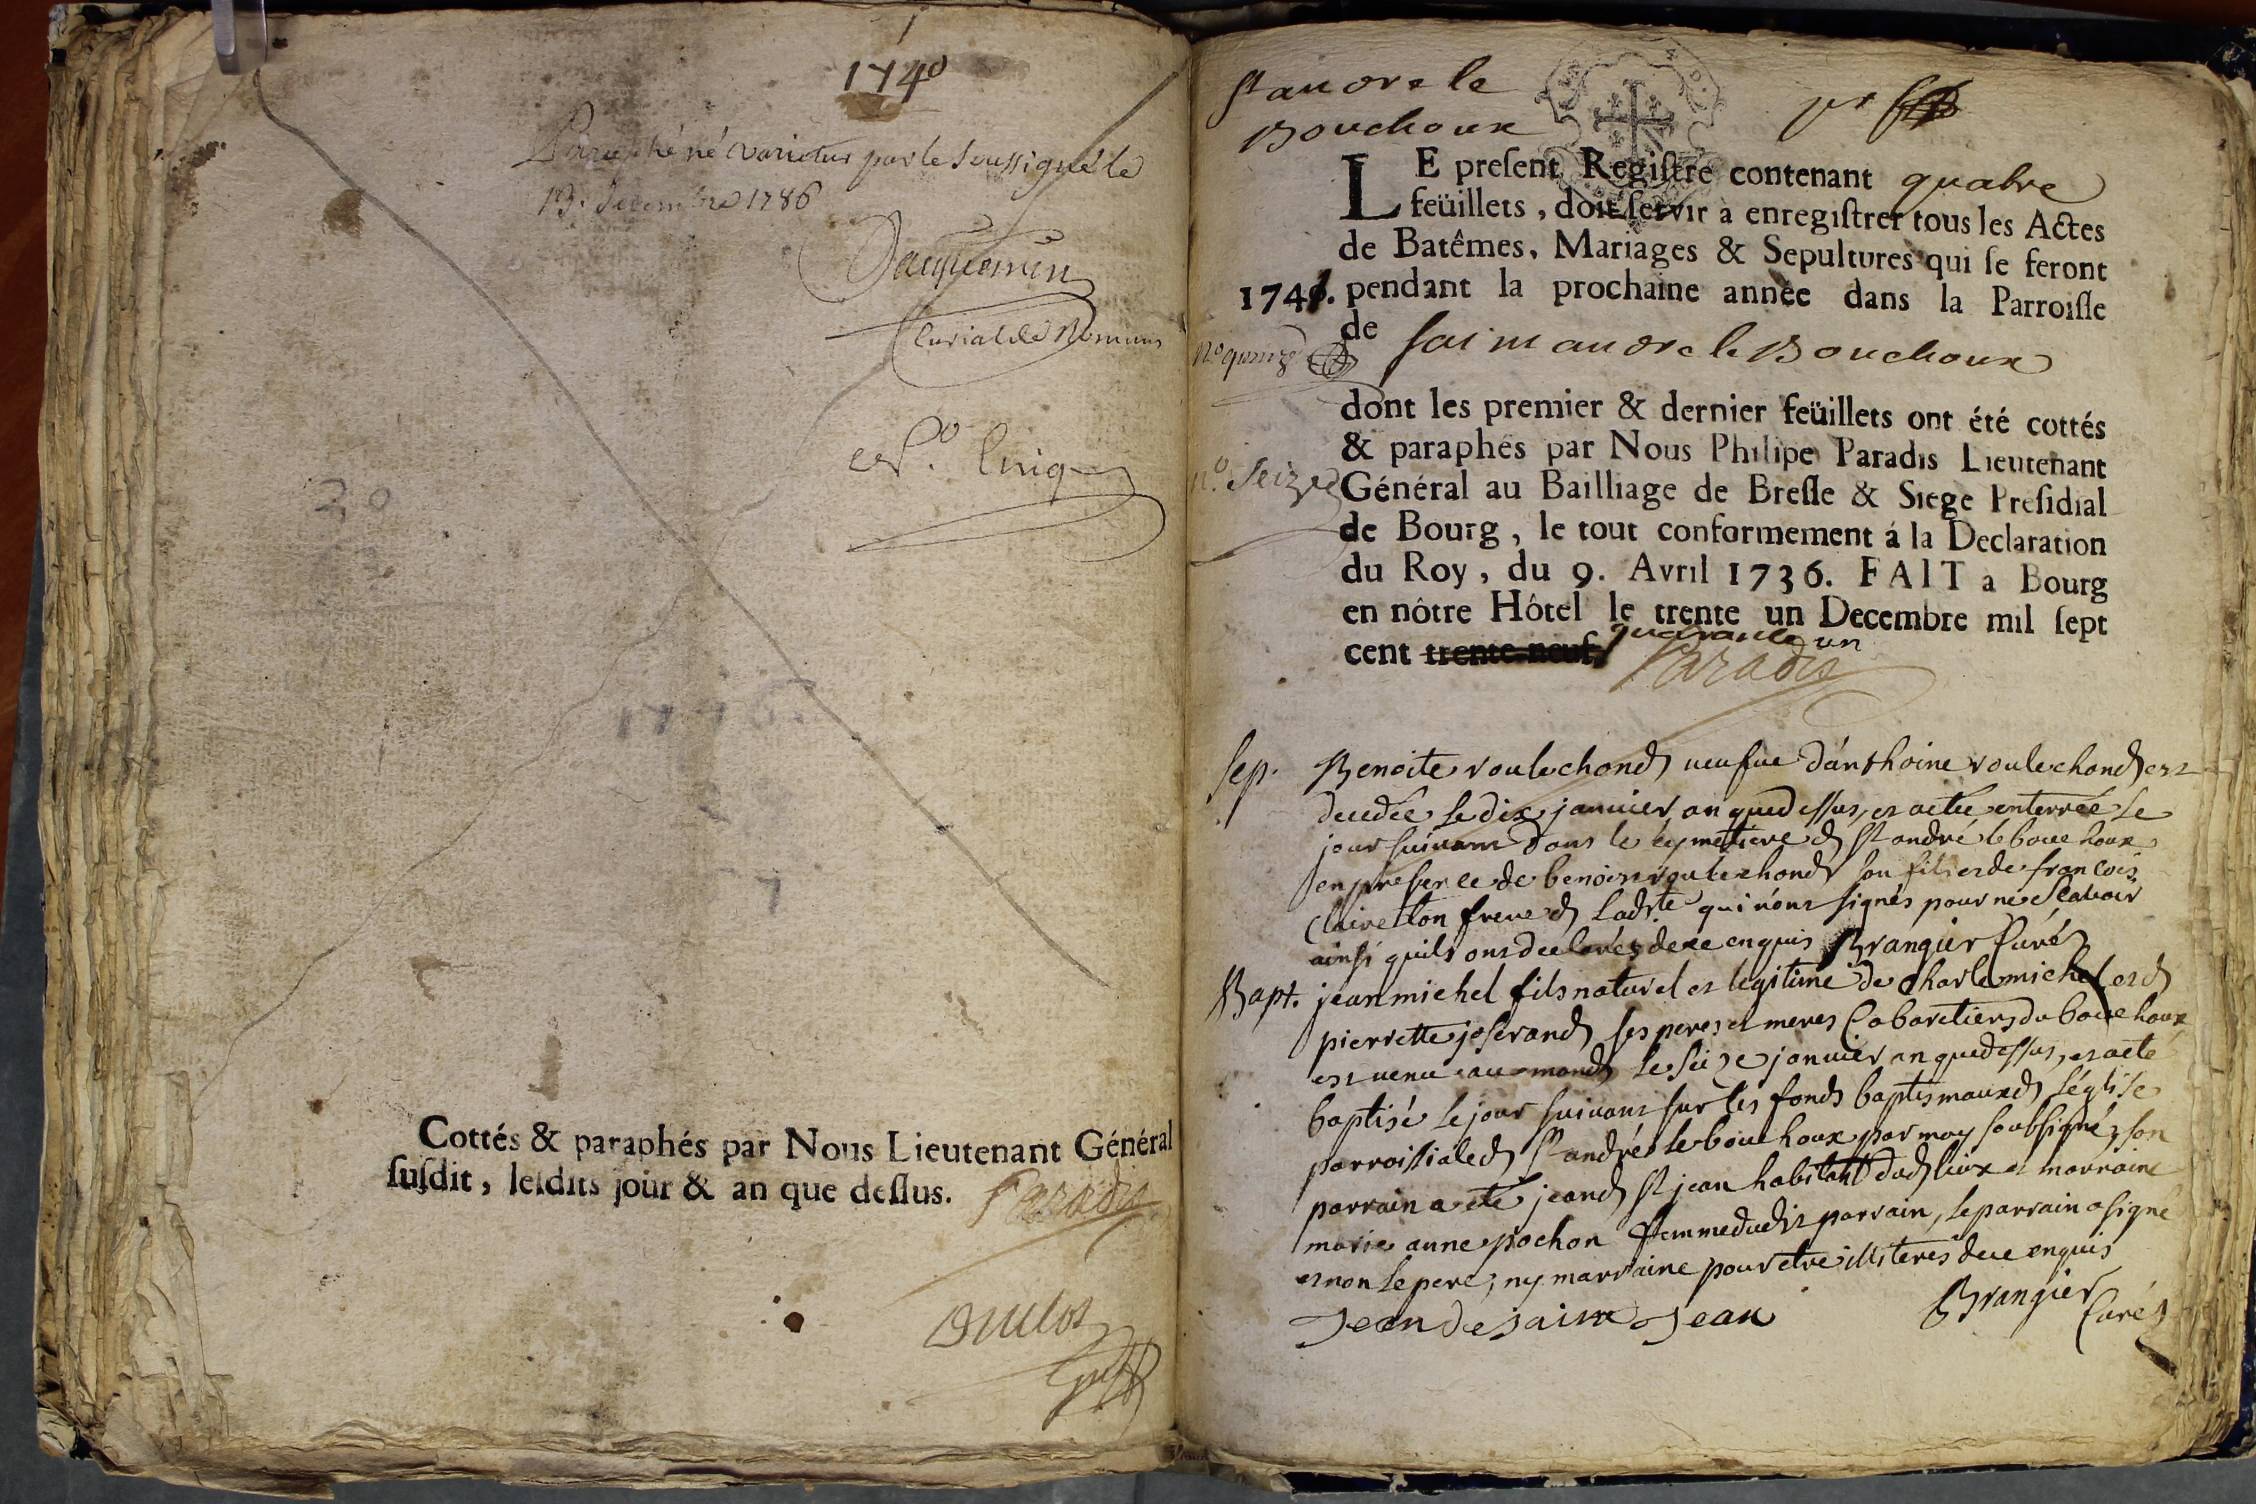 1740
Paraphé né varietur par le soussigné le
13. Decembre 1786
Jacquemin
Curial de Romans
20
1746.
7
Cottés & paraphés par Nous Lieutenant Général
suſdit, leſdits jour & an que deſſus. Paradis
Duclos
St andre le
Bouchoux
LE preſent Regiſtre contenant quatre
feüillets, doit ſervir à enregiſtrer tous les Actes
de Batêmes, Mariages & Sepultures qui ſe feront
1741. pendant la prochaine année dans la Parroiſſe
de Saint andre le Bouchoux
No quinze
dont les premier & dernier feüillets ont été cottés
& paraphés par Nous Philipe Paradis Lieutenant
no. Seize Général au Bailliage de Breſſe & Siege Preſidial
de Bourg, le tout conformement á la Declaration
du Roy, du 9. Avril 1736. FAIT a Bourg
en nôtre Hôtel le trente un Decembre mil ſept
cent trente-neuf, quarante un
Paradis
Sep. Benoite roulechond veufue d'anthoine roulechond est
decedée le dix janvier, an que dessus, et a eté enterrée le
jour suivant dans le cymetiere d St andré le bouchoux
en presence de benoist roulechond son fils et de francois
Clairet son frere d ladte qui n'ont signés pour ne scavoir
ainsi quils ont declarés de ce enquis Brangier Curé
Bapt. jean michel fils naturel et legitime de Charle michel et d
pierrette joserand ses peres et meres Cabaretiers du bouchoux
est venu au monde le seize janvier an que dessus, et a eté
baptisé le jour suivant sur les fonds baptismaux d l'église
parroissiale d St andré le bouchoux par moy soubsigné, son
parrain a eté jean d St jean habitant dud lieux et marraine
marie anne pochon femme dudit parrain, le parrain a signé
et non le pere, ny marraine pour etre illiterés de ce enquis
Jean de saint Jean Brangier
Curé